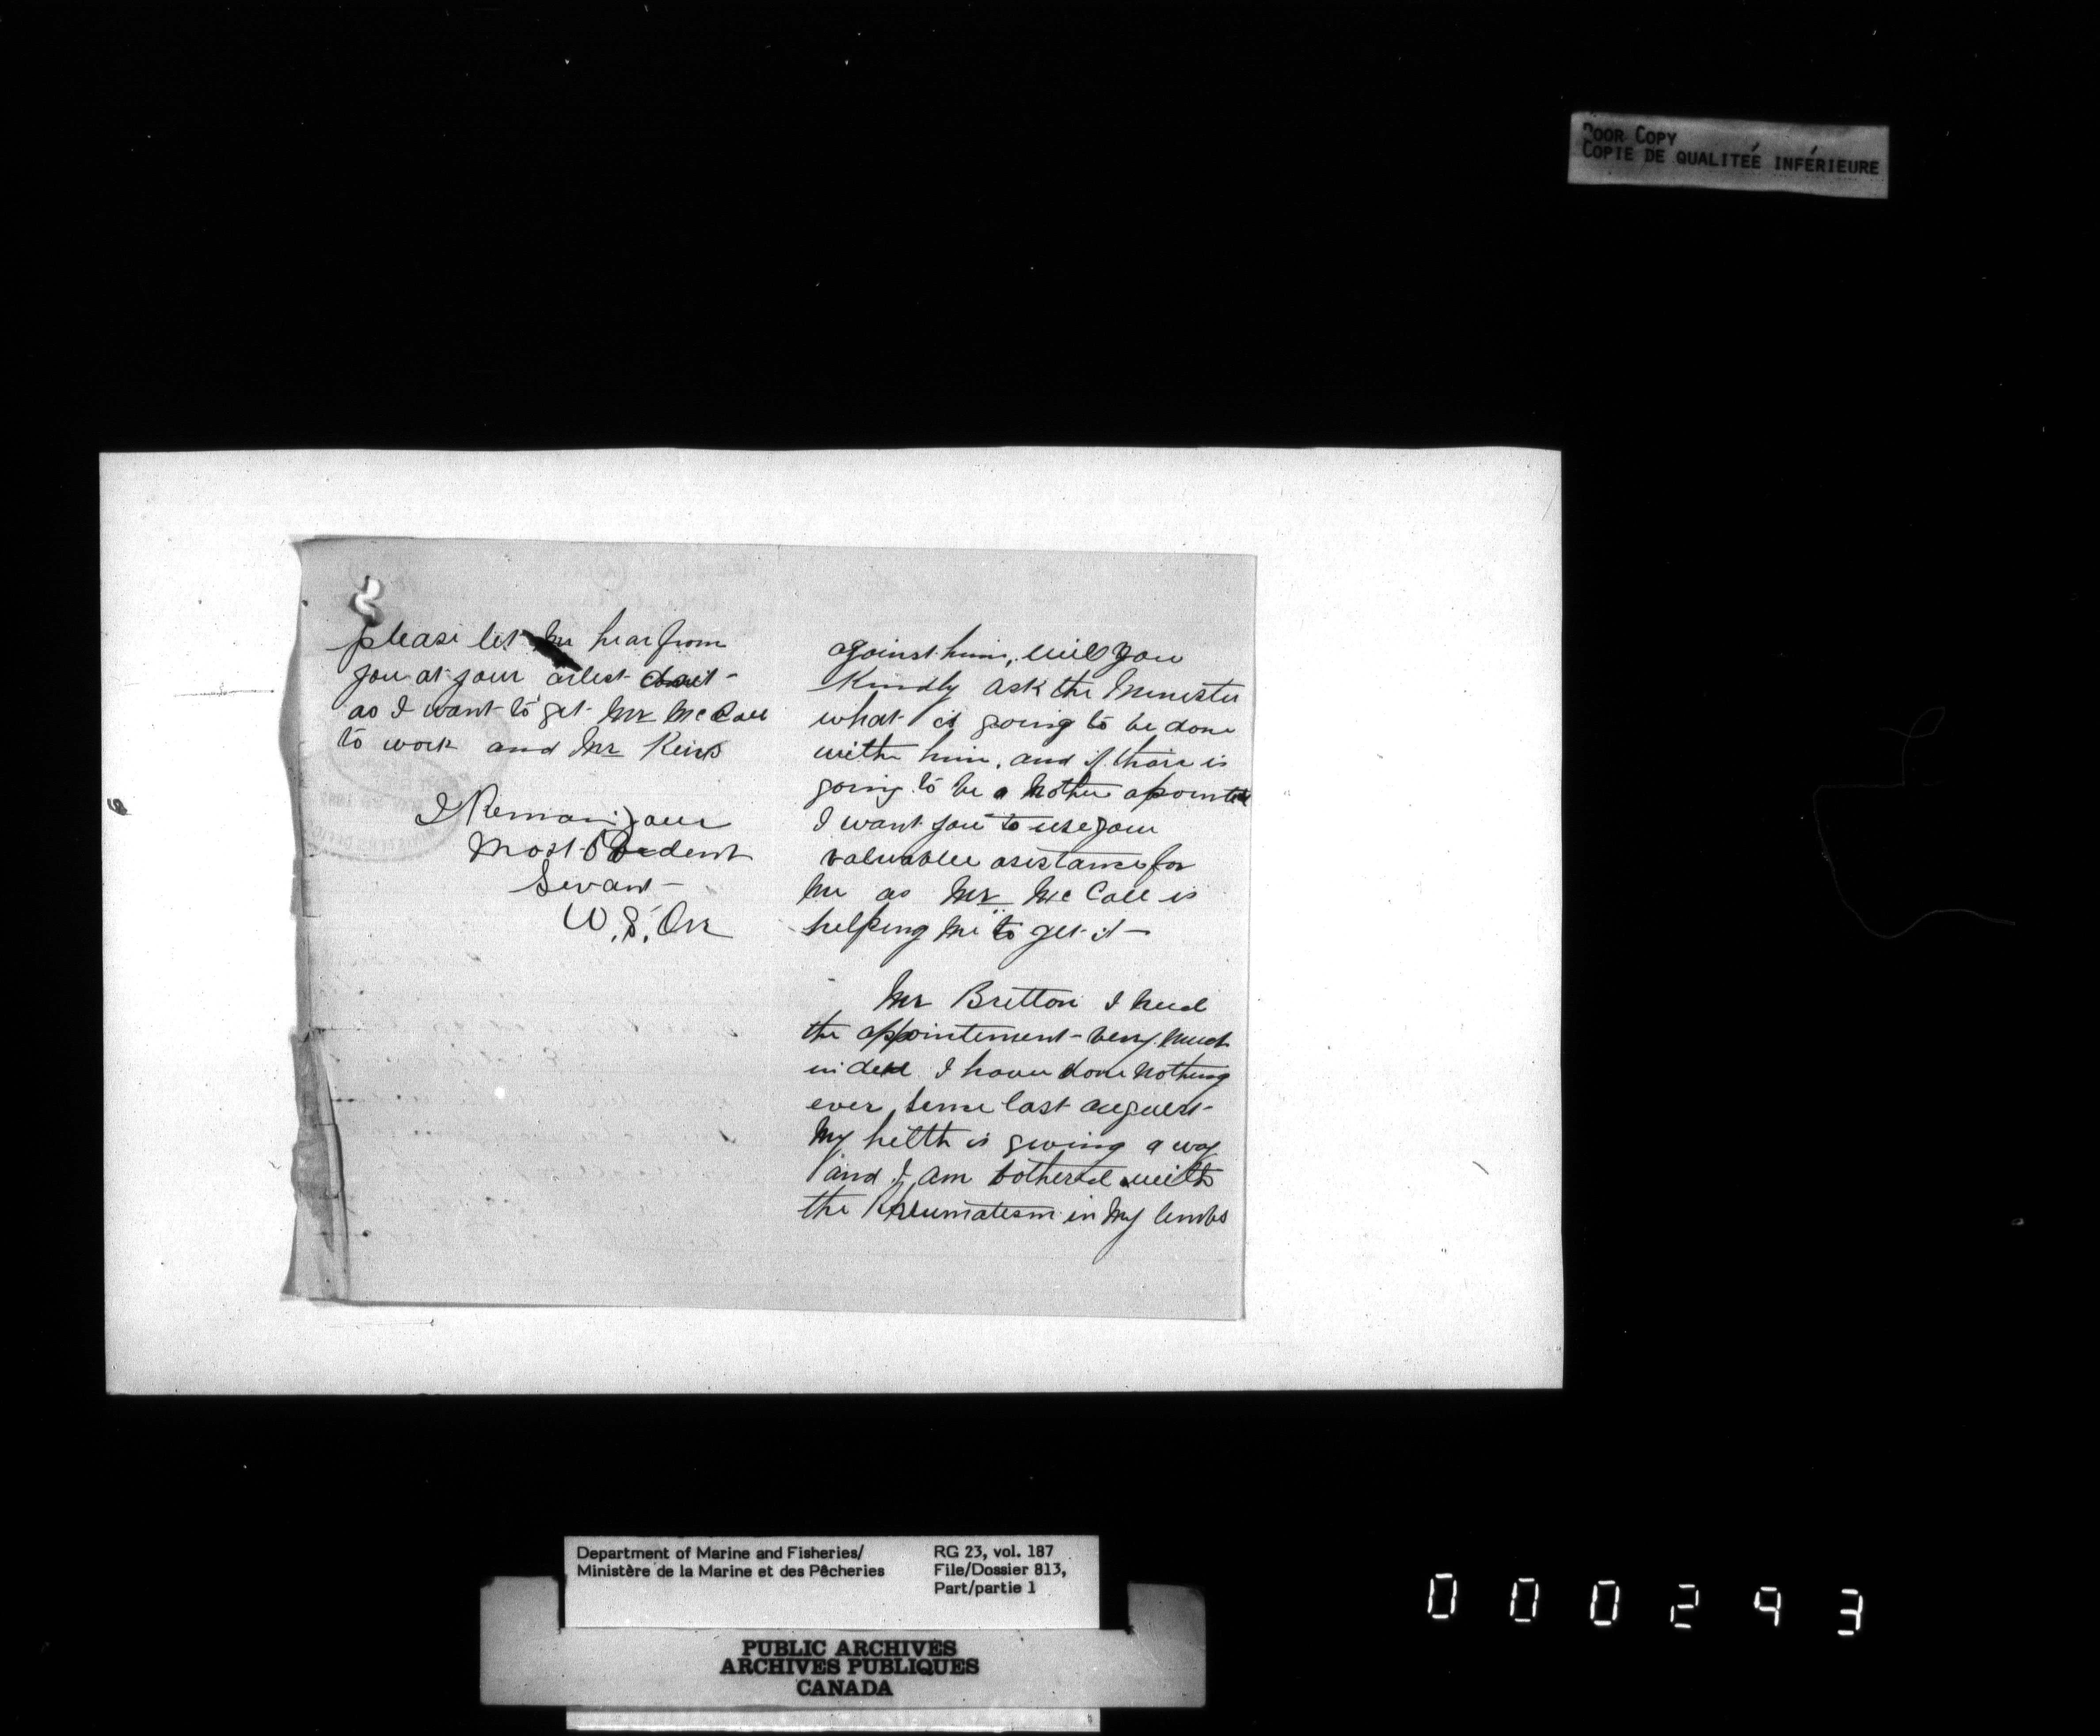 POOR COPY
COPIE DE QUALITEÉ INFÉRIEURE
please let me hear from
you at your arlest
as I want to get Mr McCall
to work and Mr
I Remain your
Most Obedent
Servant
W. S. Orr
against him, will you
Kindly ask the Minister
what is going to be done
with him, and if thair is
going to be a nother apointed
I want you to use your
valuable asistance for
me as Mr McCall is
helping me to get it
Mr Britton I need
the appointement very much
in deed I have done nothing
ever sence last august
My helth is giving a way
and I am bothered with
the Rheumatism in my limbs
Department of Marine and Fisheries/
Ministère de la Marine et des Pêcheries
RG 23, vol. 187
File/Dossier 813,
Part/partie 1
PUBLIC ARCHIVES
ARCHIVES PUBLIQUES
CANADA
000293